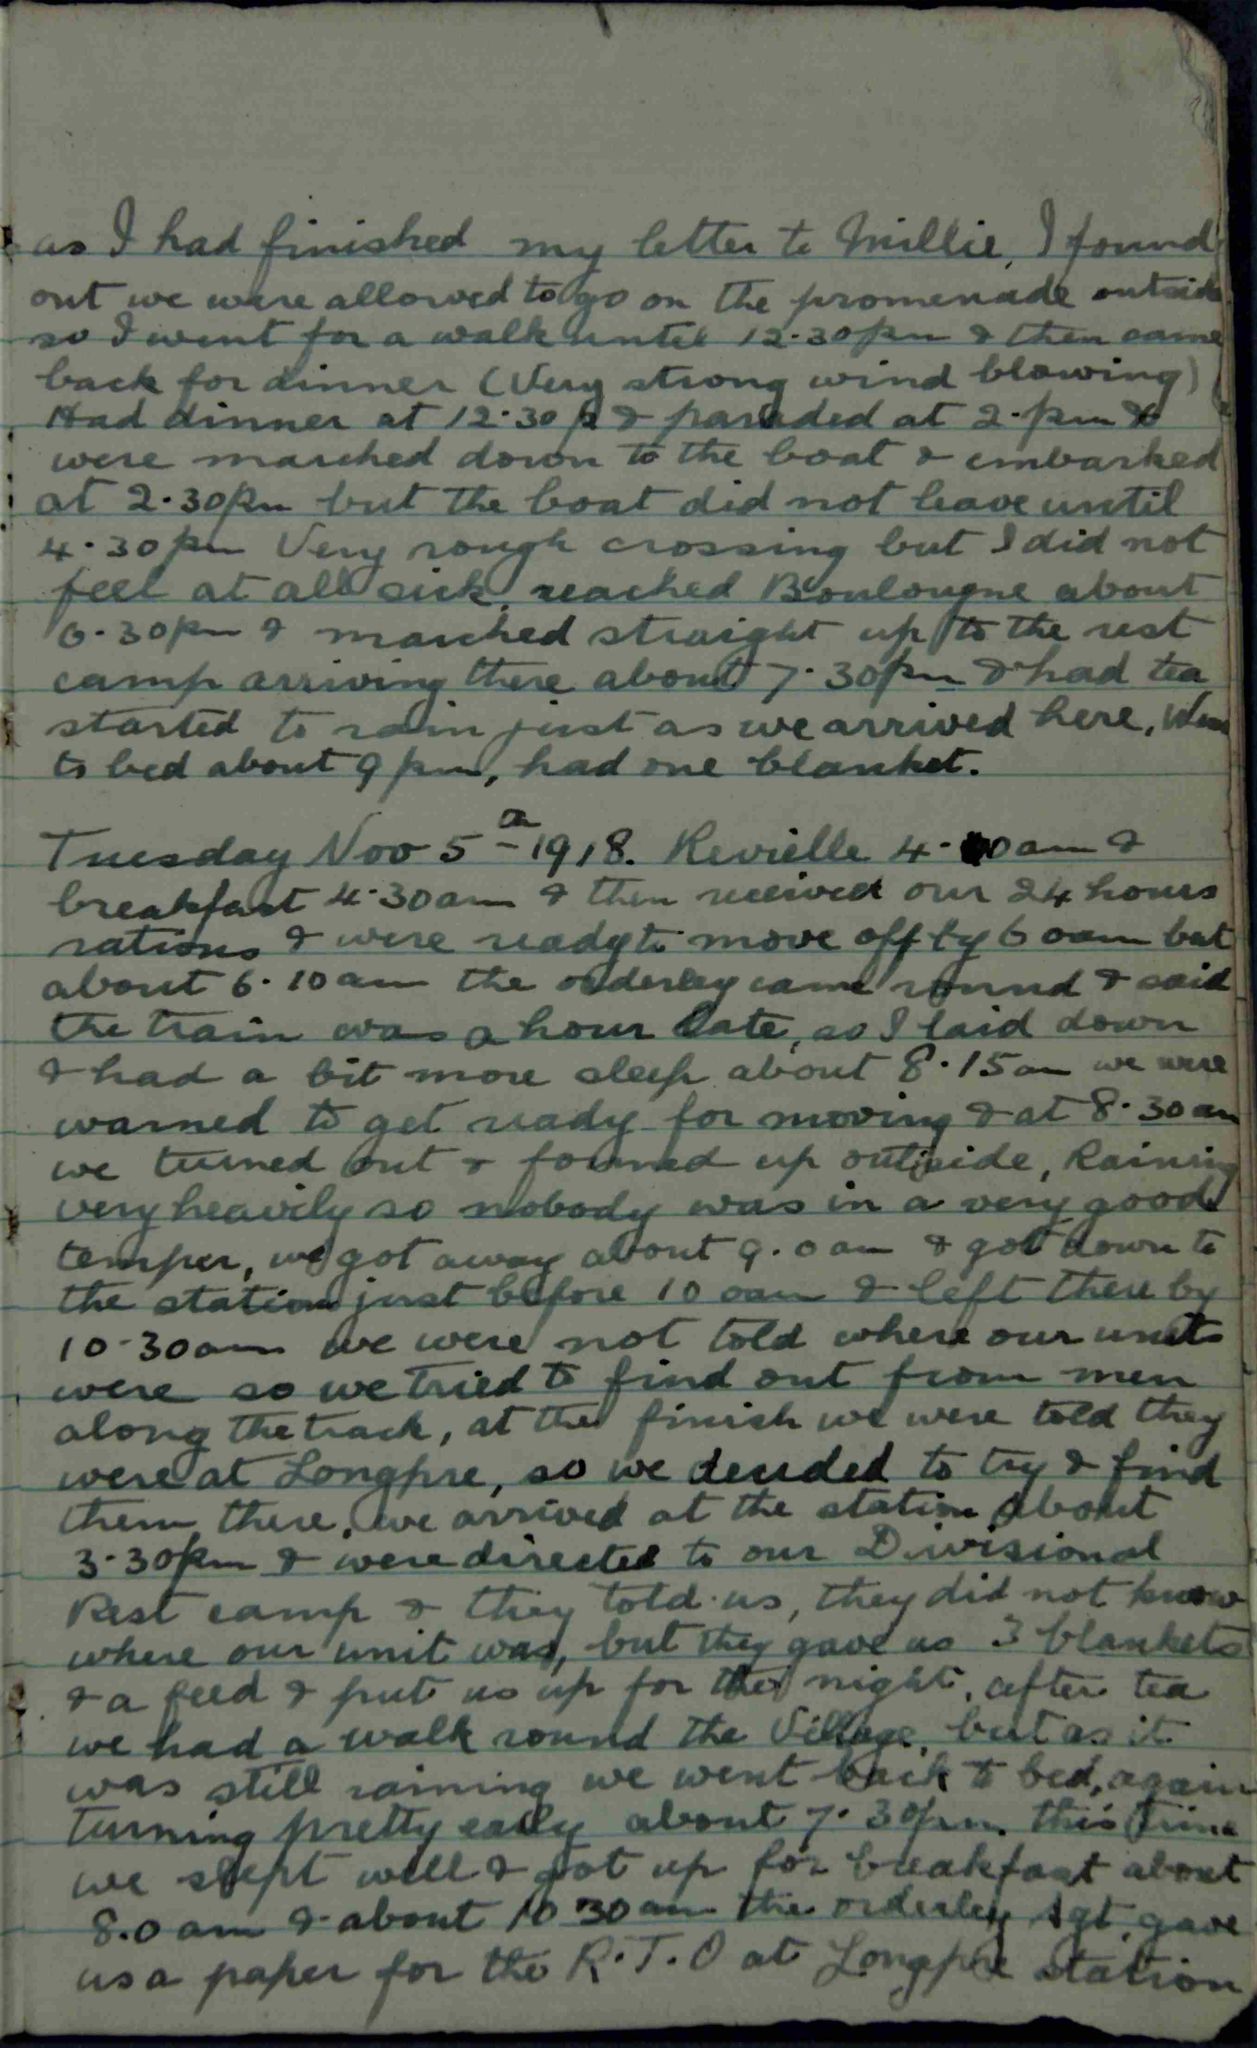 as I had finished my letter to Millie, I found
out we were allowed to go on the promenade outside
so I went for a walk until 12.30pm & then came
back for dinner (Very strong wind blowing)
Had dinner at 12.30p & paraded at 2.pm &
were marched down to the boat & embarked
at 2.30pm but the boat did not leave until
4.30pm Very rough crossing but I did not
feel at all sick, reached Boulougne about
6.30pm & marched straight up to the rest
camp arriving there about 7.30pm & had tea
started to rain just as we arrived here, Went
to bed about 9pm, had one blanket.
Tuesday Nov 5th 1918. Revielle 4.0am &
breakfast 4.30am & then received our 24 hours
rations & were ready to move off by 6 0am but
about 6.10am the orderley came round & said
the train was a hour late, so I laid down
& had a bit more sleep about 8.15am we were
warned to get ready for moving & at 8.30am
we turned out & formed up outside, Raining
very heavily so nobody was in a very good
temper, we got away about 9.0am & got down to
the station just before 10 0am & left there by
10.30am we were not told where our units
were so we tried to find out from men
along the track, at the finish we were told they
were at Longpre, so we decided to try & find
them there, we arrived at the station about
3.30pm & were directed to our Divisional
Rest camp & they told us, they did not know
where our unit was, but they gave us 3 blankets
& a feed & put us up for the night, after tea
we had a walk round the Village, but as it
was still raining we went back to bed, again
turning pretty early about 7.30pm. this time
we slept well & got up for breakfast about
8.0am & about 10 30am the orderley Sgt. gave
us a paper for the R.T.O at Longpre station